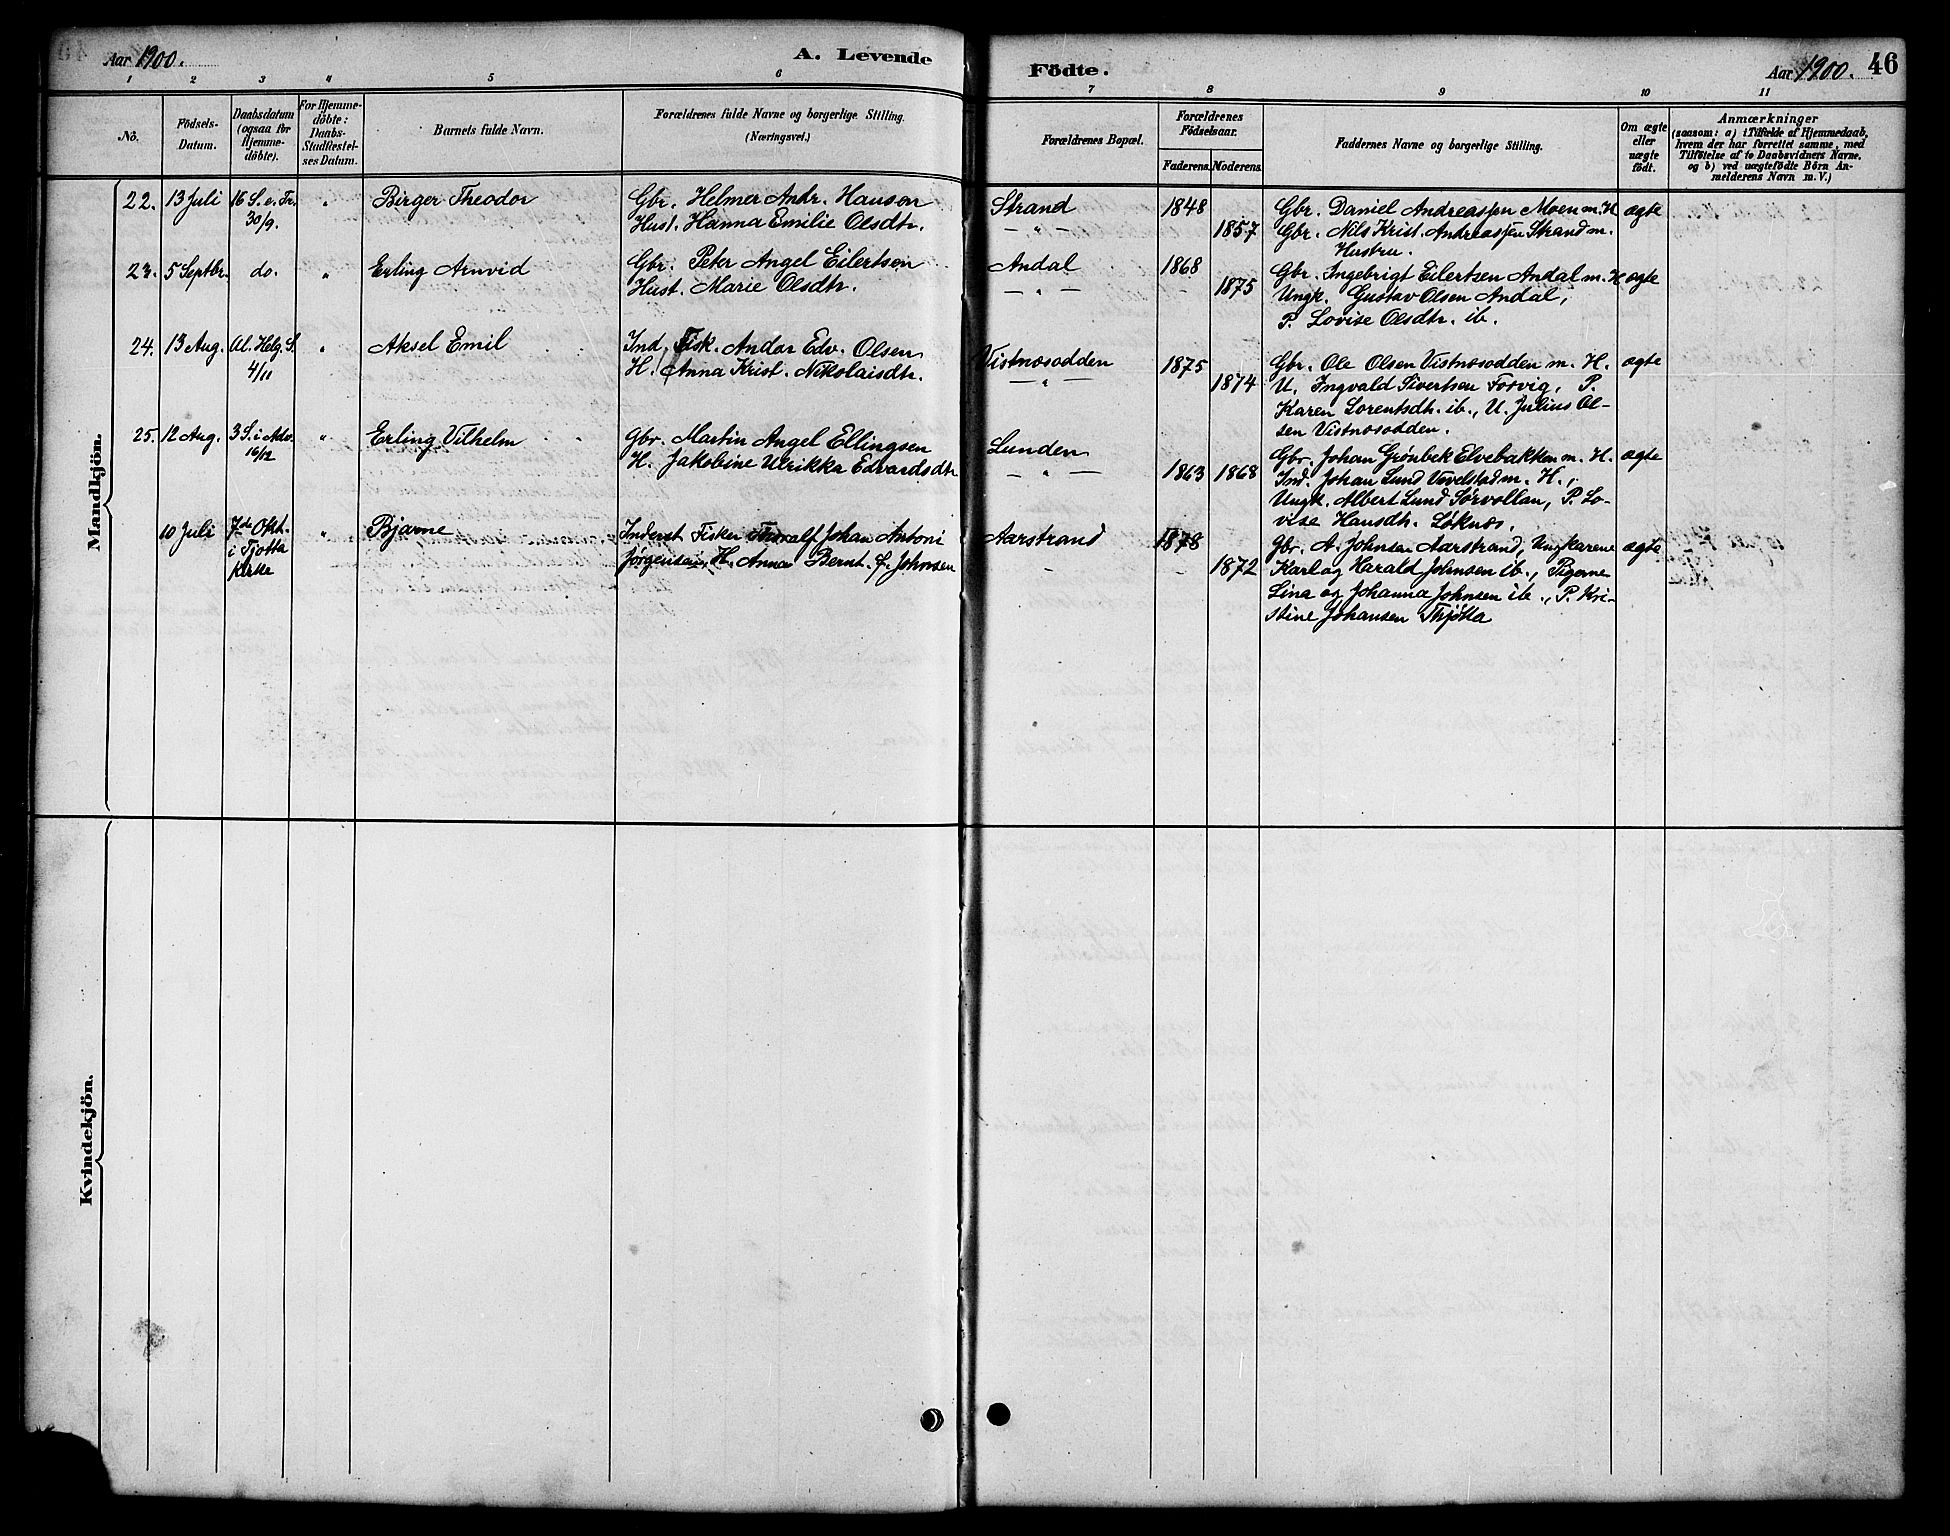 Aar 1900. A. Levende Födte. Aar 1900. 46
1 2 3 4 5 6 7 8 9 10 11
No. Födsels-Datum. Daabsdatum (ogsaa for Hjemme-döbte). For Hjemme-döbte: Daabs-Stadfæstel-ses Datum. Barnets fulde Navn. Forældrenes fulde Navne og borgerlige Stilling. (Næringsvei.) Forældrenes Bopæl. Forældrenes Födselsaar. Faderens. Moderens. Faddernes Navne og borgerlige Stilling. Om ægte eller uægte födt. Anmærkninger (saasom: a) i Tilfælde af Hjemmedaab, hvem der har forrettet samme, med Tilföielse af to Daabsvidners Navne, og b) ved uægtefödte Börn An-melderens Navn m. V.)
Mandkjön.
22. 13 Juli 16 S. e. Tr. " Birger Theodor Gbr. Helmer Andr. Hanson Strand 1848 Gbr. Daniel Andreassen Moen m. H ægte
30/9. Hust. Hanna Emilie Olsdtr. — " — 1857 Gbr. Nils Krist. Andreassen Strand m.
Hustru.
23. 5 Septbr. do. " Erling Arnvid Gbr. Peter Angel Eilertsen Andal 1868 Gbr. Ingebrigt Eilertsen Andal m. H ægte
Hust. Marie Olsdtr. — " — 1875 Ungk. Gustav Olsen Andal,
P. Lovise Olsdtr. ib.
24. 13 Aug. Al. Helg. S. " Aksel Emil Ind. Fisk. Andor Edv. Olsen Vistnæsodden 1875 Gbr. Ole Olsen Vistnæsodden m. H. ægte
4/11 H. Anna Krist. Nikolaisdtr. — " — 1874 U. Ingvald Sivertsen Forvig, P.
Karen Lorentsdtr. ib., U. Julius Ol-
sen Vistnæsodden.
25. 12 Aug. 3 S. i Adv. " Erling Vilhelm Gbr. Martin Angel Ellingsen Lunden Gbr. Johan Grønbek Elvebakken m. H. ægte
16/12 H. Jakobine Ulrikka Edvardsdtr — " — 1863 1868 Ind. Johan Lund Vevelstad m. H.,
Ungk. Albert Lund Sørvollan, P. Lo-
vise Hansdtr. Løknæs.
10 Juli 7de Okt. " Bjarne Inderst Fisker Thoralf Johan Antoni Aarstrand 1878 Gbr. A. Johnsen Aarstrand, Ungkarene ægte
i Tjøtta Jørgensen, H. Anna Bernt. f. Johnsen " 1872 Karl og Harald Johnsen ib., Pigerne
Kirke Lina og Johanna Johnsen ib., P. Kri-
stine Johansen Thjøtta
Kvindekjön.